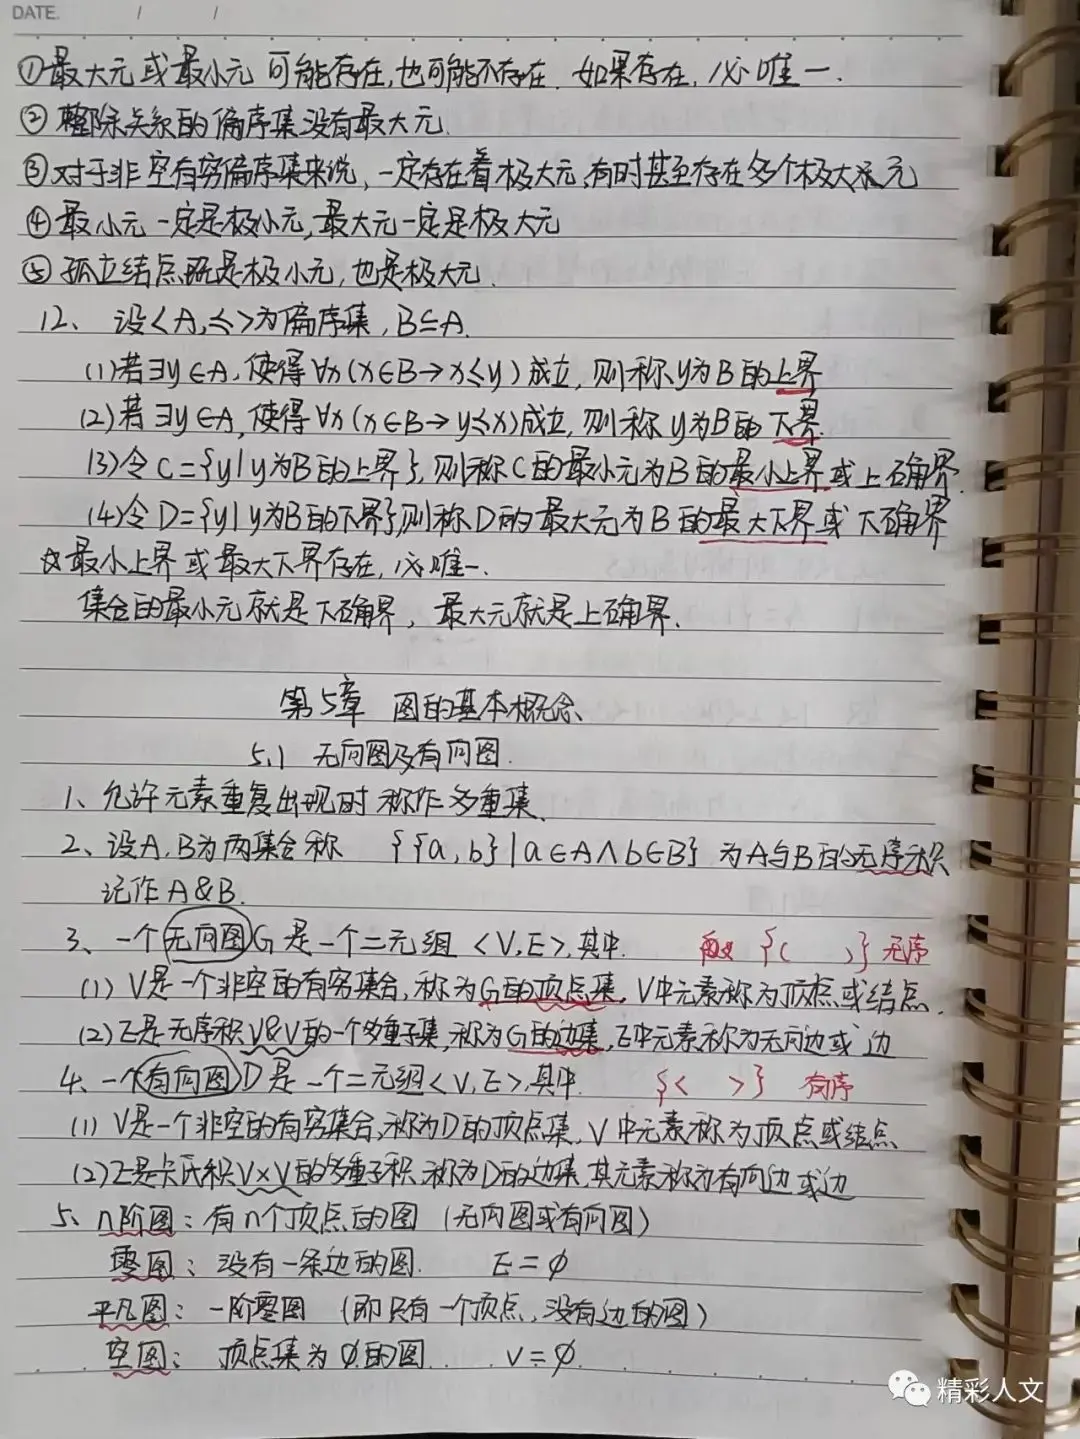 DATE. / /
①最大元或最小元 可能存在,也可能不存在. 如果存在,必唯一.
②整除关系的偏序集没有最大元.
③对于非空有穷偏序集来说,一定存在着极大元,有时甚至存在多个极大元
④最小元一定是极小元,最大元一定是极大元
⑤孤立结点既是极小元,也是极大元.
12、设<A,≤>为偏序集,B⊆A.
(1)若∃y∈A,使得∀x(x∈B→x≤y)成立,则称y为B的上界
(2)若∃y∈A,使得∀x(x∈B→y≤x)成立,则称y为B的下界.
(3)令C={y|y为B的上界},则称C的最小元为B的最小上界或上确界.
(4)令D={y|y为B的下界},则称D的最大元为B的最大下界或下确界
☆最小上界或最大下界存在,必唯一.
集合的最小元就是下确界,最大元就是上确界.
第5章 图的基本概念、
5.1 无向图及有向图.
1、允许元素重复出现时称作多重集、
2、设A,B为两集合称 {{a,b}|a∈A∧b∈B} 为A与B的无序积
记作A&B.
3、一个无向图G是一个二元组<V,E>,其中. {( )} 无序
(1)V是一个非空的有穷集合,称为G的顶点集,V中元素称为顶点或结点.
(2)E是无序积V&V的一个多重子集,称为G的边集,E中元素称为无向边或边
4、一个有向图D是一个二元组<V,E>,其中. {< >} 有序
(1)V是一个非空的有穷集合,称为D的顶点集,V中元素称为顶点或结点
(2)E是卡氏积V×V的多重子积,称为D的边集,其元素称为有向边或边
5、n阶图:有n个顶点的图(无向图或有向图)
零图:没有一条边的图. E=∅
平凡图:一阶零图(即只有一个顶点,没有边的图)
空图:顶点集为∅的图. V=∅.
精彩人文